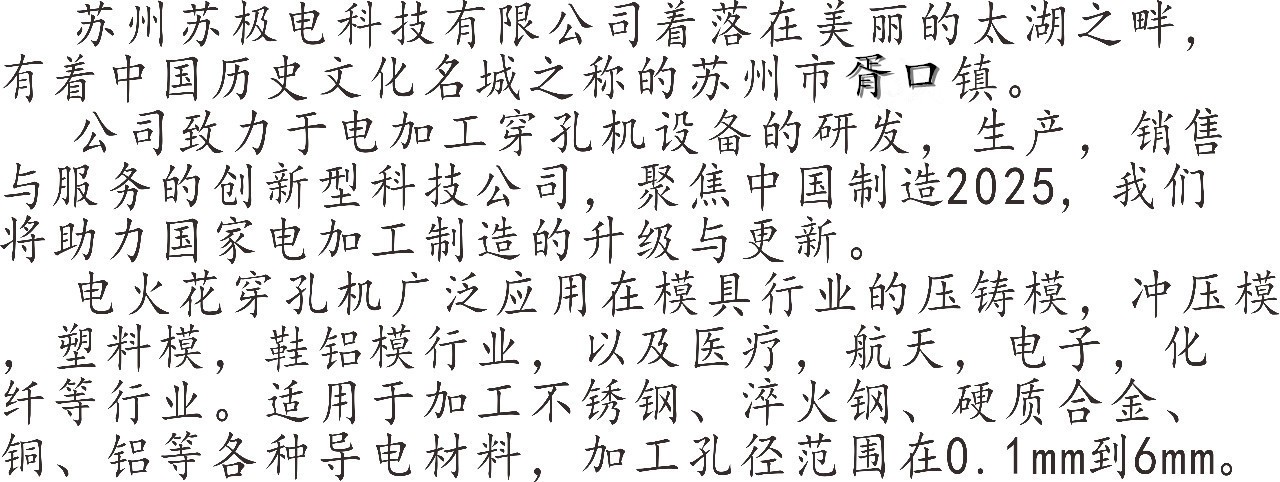 苏州苏极电科技有限公司着落在美丽的太湖之畔，
有着中国历史文化名城之称的苏州市胥口镇。
公司致力于电加工穿孔机设备的研发，生产，销售
与服务的创新型科技公司，聚焦中国制造2025，我们
将助力国家电加工制造的升级与更新。
电火花穿孔机广泛应用在模具行业的压铸模，冲压模
，塑料模，鞋铝模行业，以及医疗，航天，电子，化
纤等行业。适用于加工不锈钢、淬火钢、硬质合金、
铜、铝等各种导电材料，加工孔径范围在0.1mm到6mm。